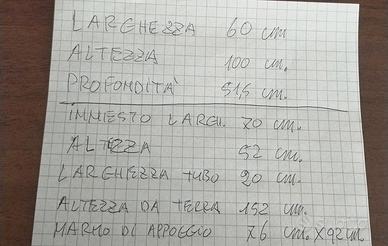 LARGHEZZA 60 cm
ALTEZZA 100 cm.
PROFONDITÀ 51,5 cm.
INNESTO LARGH. 70 cm.
ALTEZZA 52 cm.
LARGHEZZA TUBO 20 cm.
ALTEZZA DA TERRA 152 cm.
MARMO DI APPOGGIO 76 cm. X 92 cm.